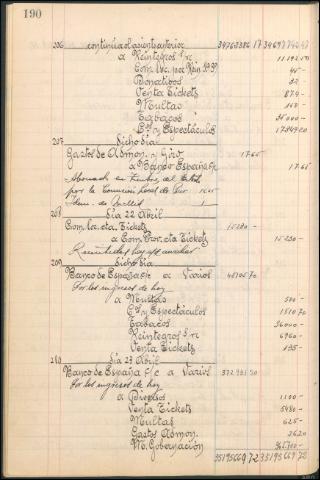 190
206 continúa el asiento anterior 34763386 17 34697742 47
a Reintegros s/c 11192 50
Com. Loc. por Rein. 45-
Donativos 32-
Venta Tickets 874-
Multas 150-
Tabacos 36000-
C. y Espectáculos
207 Dicho día
Gastos de Admon. y Giro 17 65
a Banco España c/c 17 65
Abonado en timbres del Estado
por la Comisión Local de
Idem. de 1-
208 Día 22 Abril
Com. Loc. cta Tickets 15230-
a Com. Prov. cta Tickets 15230-
Remitidas hoy
209 Dicho día
Banco de España c/c a Varios 45105 70
Por los ingresos de hoy
a Multas 500-
C. y Espectáculos 1510 70
Tabacos 36000-
Reintegros s/c 6960-
Venta Tickets 135-
210 Día 23 Abril
Banco de España c/c a Varios 372931 20
Por los ingresos de hoy
a Diversos 1100-
Venta Tickets 5480-
Multas 625-
Gastos Admon. 26 20
M. Gobernación 365700-
35195669 72 35195669 72